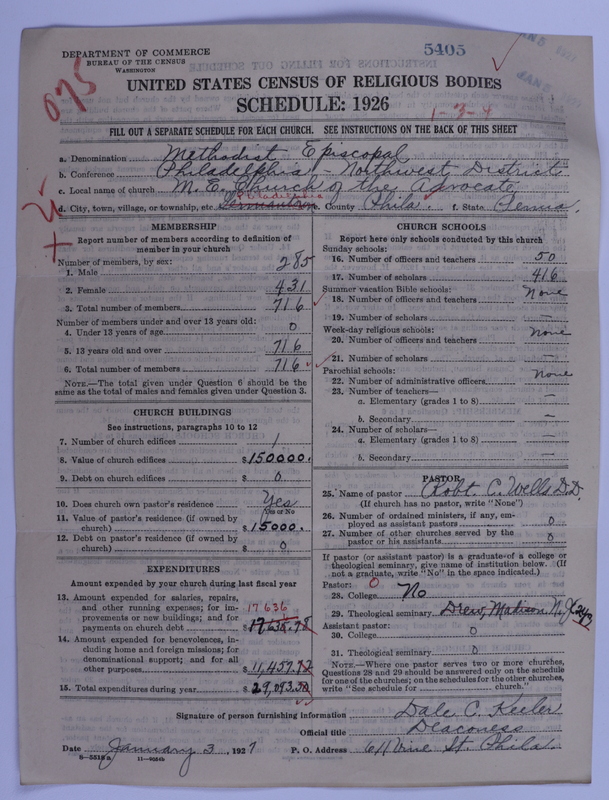 DEPARTMENT OF COMMERCE
BUREAU OF THE CENSUS
WASHINGTON
5405
JAN 5 1927
075
UNITED STATES CENSUS OF RELIGIOUS BODIES
SCHEDULE: 1926
1-3-4
FILL OUT A SEPARATE SCHEDULE FOR EACH CHURCH. SEE INSTRUCTIONS ON THE BACK OF THIS SHEET
a. Denomination Methodist Episcopal
b. Conference Philadelphia - Northwest District
c. Local name of church M. E. Church of the Advocate
Philadelphia
d. City, town, village, or township, etc. Germantown e. County Phila. f. State Penna.
MEMBERSHIP
Report number of members according to definition of
member in your church
Number of members, by sex:
1. Male 285
2. Female 431
3. Total number of members 716
Number of members under and over 13 years old:
4. Under 13 years of age 0
5. 13 years old and over 716
6. Total number of members 716
NOTE.—The total given under Question 6 should be the
same as the total of males and females given under Question 3.
CHURCH BUILDINGS
See instructions, paragraphs 10 to 12
7. Number of church edifices 1
8. Value of church edifices $150000.
9. Debt on church edifices $ 0
10. Does church own pastor's residence? Yes
(Yes or No)
11. Value of pastor's residence (if owned by
church) $15000.
12. Debt on pastor's residence (if owned by
church) $ 0
EXPENDITURES
Amount expended by your church during last fiscal year
13. Amount expended for salaries, repairs,
and other running expenses; for im-
provements or new buildings; and for
payments on church debt 17636
$17635.78
14. Amount expended for benevolences, in-
cluding home and foreign missions; for
denominational support; and for all
other purposes $11,457.72
15. Total expenditures during year $29,093.50
CHURCH SCHOOLS
Report here only schools conducted by this church
Sunday schools:
16. Number of officers and teachers 50
17. Number of scholars 416
Summer vacation Bible schools:
18. Number of officers and teachers None
19. Number of scholars —
Week-day religious schools:
20. Number of officers and teachers None
21. Number of scholars —
Parochial schools:
22. Number of administrative officers None
23. Number of teachers—
a. Elementary (grades 1 to 8) —
b. Secondary —
24. Number of scholars—
a. Elementary (grades 1 to 8) —
b. Secondary —
PASTOR
25. Name of pastor Robt. C. Wells D.D.
(If church has no pastor, write "None")
26. Number of ordained ministers, if any, em-
ployed as assistant pastors 0
27. Number of other churches served by the
pastor or his assistants 0
If pastor (or assistant pastor) is a graduate of a college or
theological seminary, give name of institution below. (If
not a graduate, write "No" in the space indicated.)
Pastor: 0
28. College No
29. Theological seminary Drew, Madison N.J.
Assistant pastor:
30. College 0
31. Theological seminary 0
NOTE.—Where one pastor serves two or more churches,
Questions 28 and 29 should be answered only on the schedule
for one of the churches; on the schedules for the other churches,
write "See schedule for church."
Signature of person furnishing information Dale C. Keeler
Official title Deaconess
Date January 3, 1927 P. O. Address 611 Vine St. Phila.
8-5518a 11-9054b